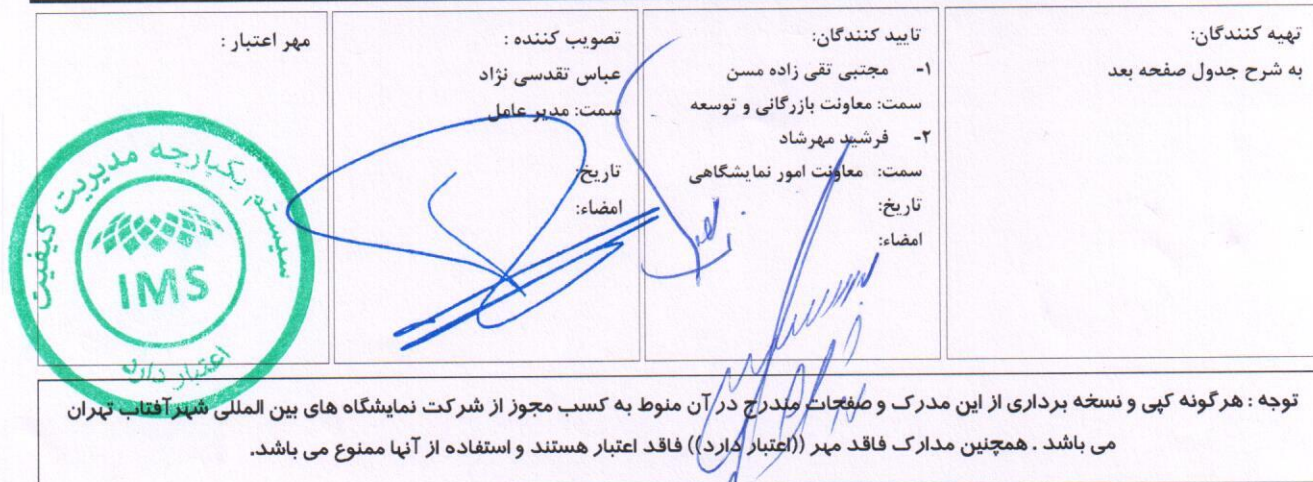 تهیه کنندگان:
به شرح جدول صفحه بعد
تایید کنندگان:
۱- مجتبی تقی زاده مسن
سمت: معاونت بازرگانی و توسعه
۲- فرشید مهرشاد
سمت: معاونت امور نمایشگاهی
تاریخ:
امضاء:
تصویب کننده :
عباس تقدسی نژاد
سمت: مدیر عامل
تاریخ:
امضاء:
مهر اعتبار :
سیستم یکپارچه مدیریت کیفیت
IMS
اعتبار دارد
توجه : هرگونه کپی و نسخه برداری از این مدرک و صفحات مندرج در آن منوط به کسب مجوز از شرکت نمایشگاه های بین المللی شهر آفتاب تهران
می باشد . همچنین مدارک فاقد مهر ((اعتبار دارد)) فاقد اعتبار هستند و استفاده از آنها ممنوع می باشد.